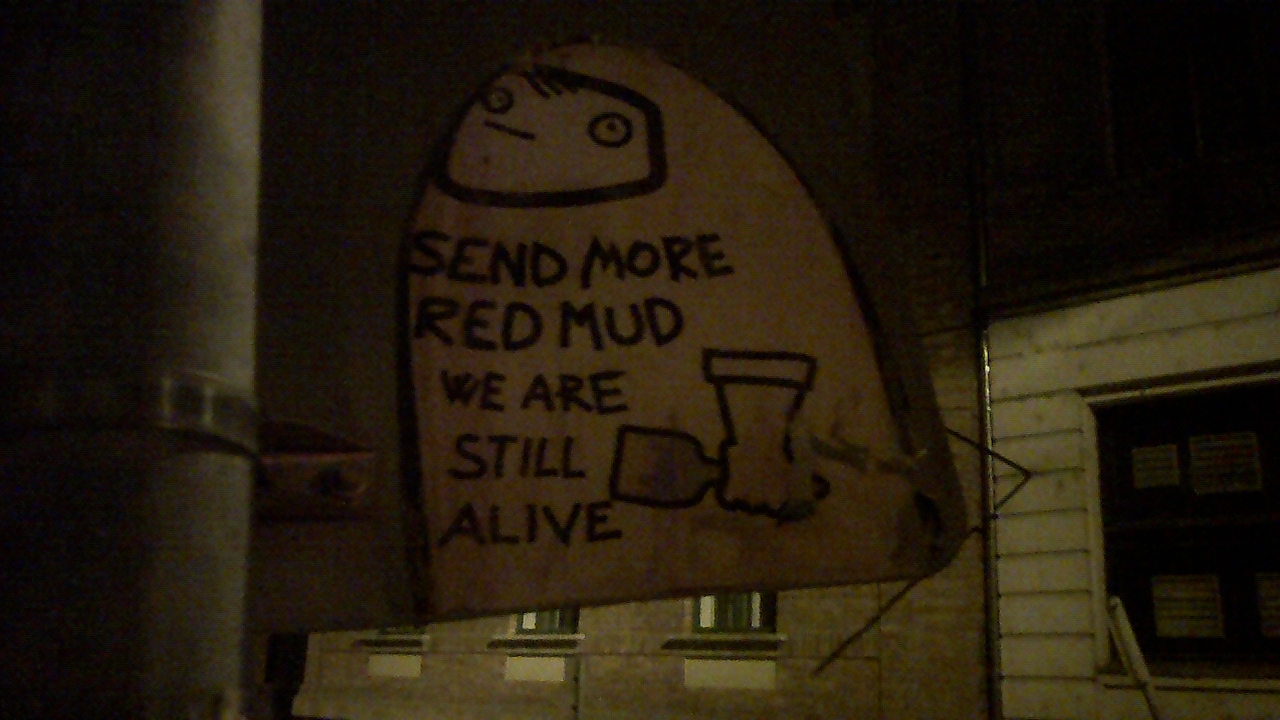 SEND MORE
RED MUD
WE ARE
STILL
ALIVE